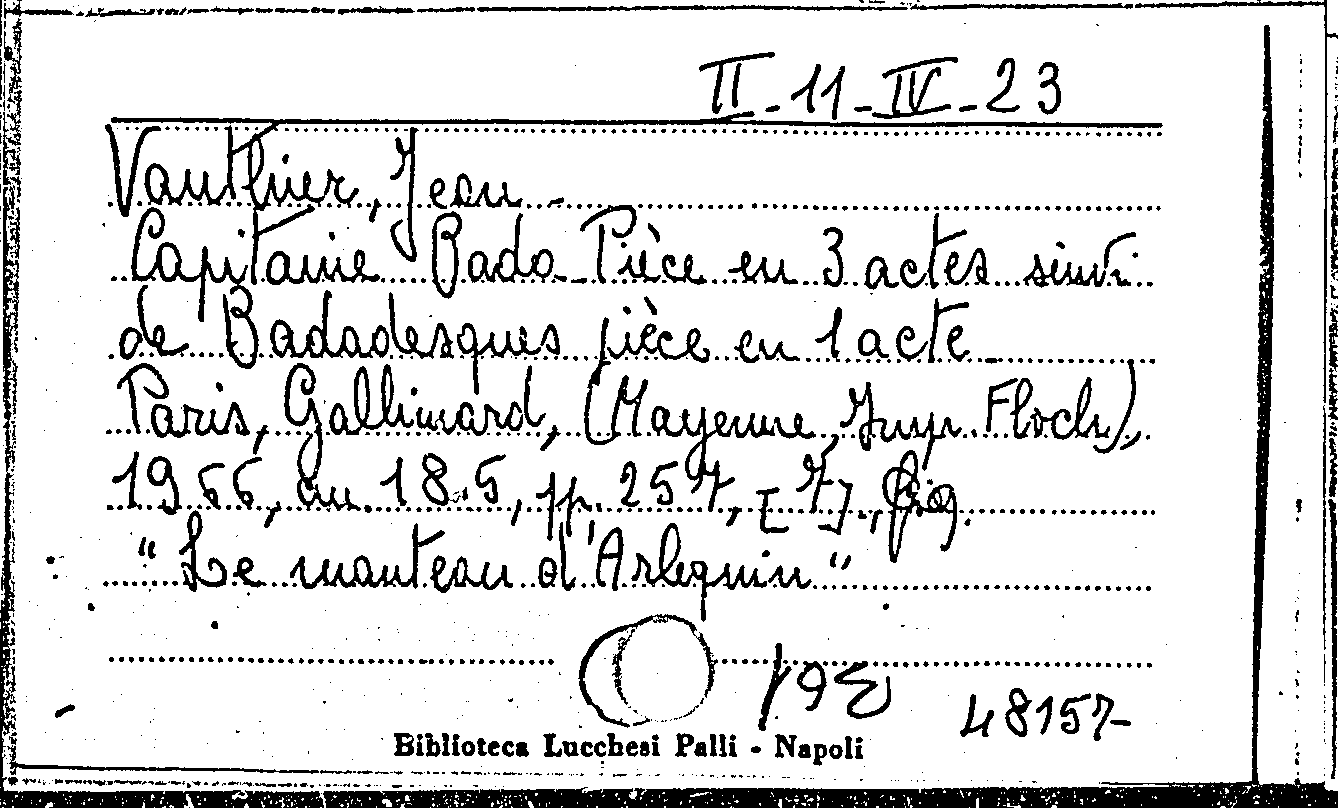 II-11-IV-23
Vauthier, Jean -
Capitaine Bada - Pièce en 3 actes suivi
de Badadesques pièce en 1 acte -
Paris, Gallimard, (Mayenne, Imp. Floch),
1966, cm. 18.5, pp. 257, [7]., fig.
"Le manteau d'Arlequin"
48157-
Biblioteca Lucchesi Palli - Napoli